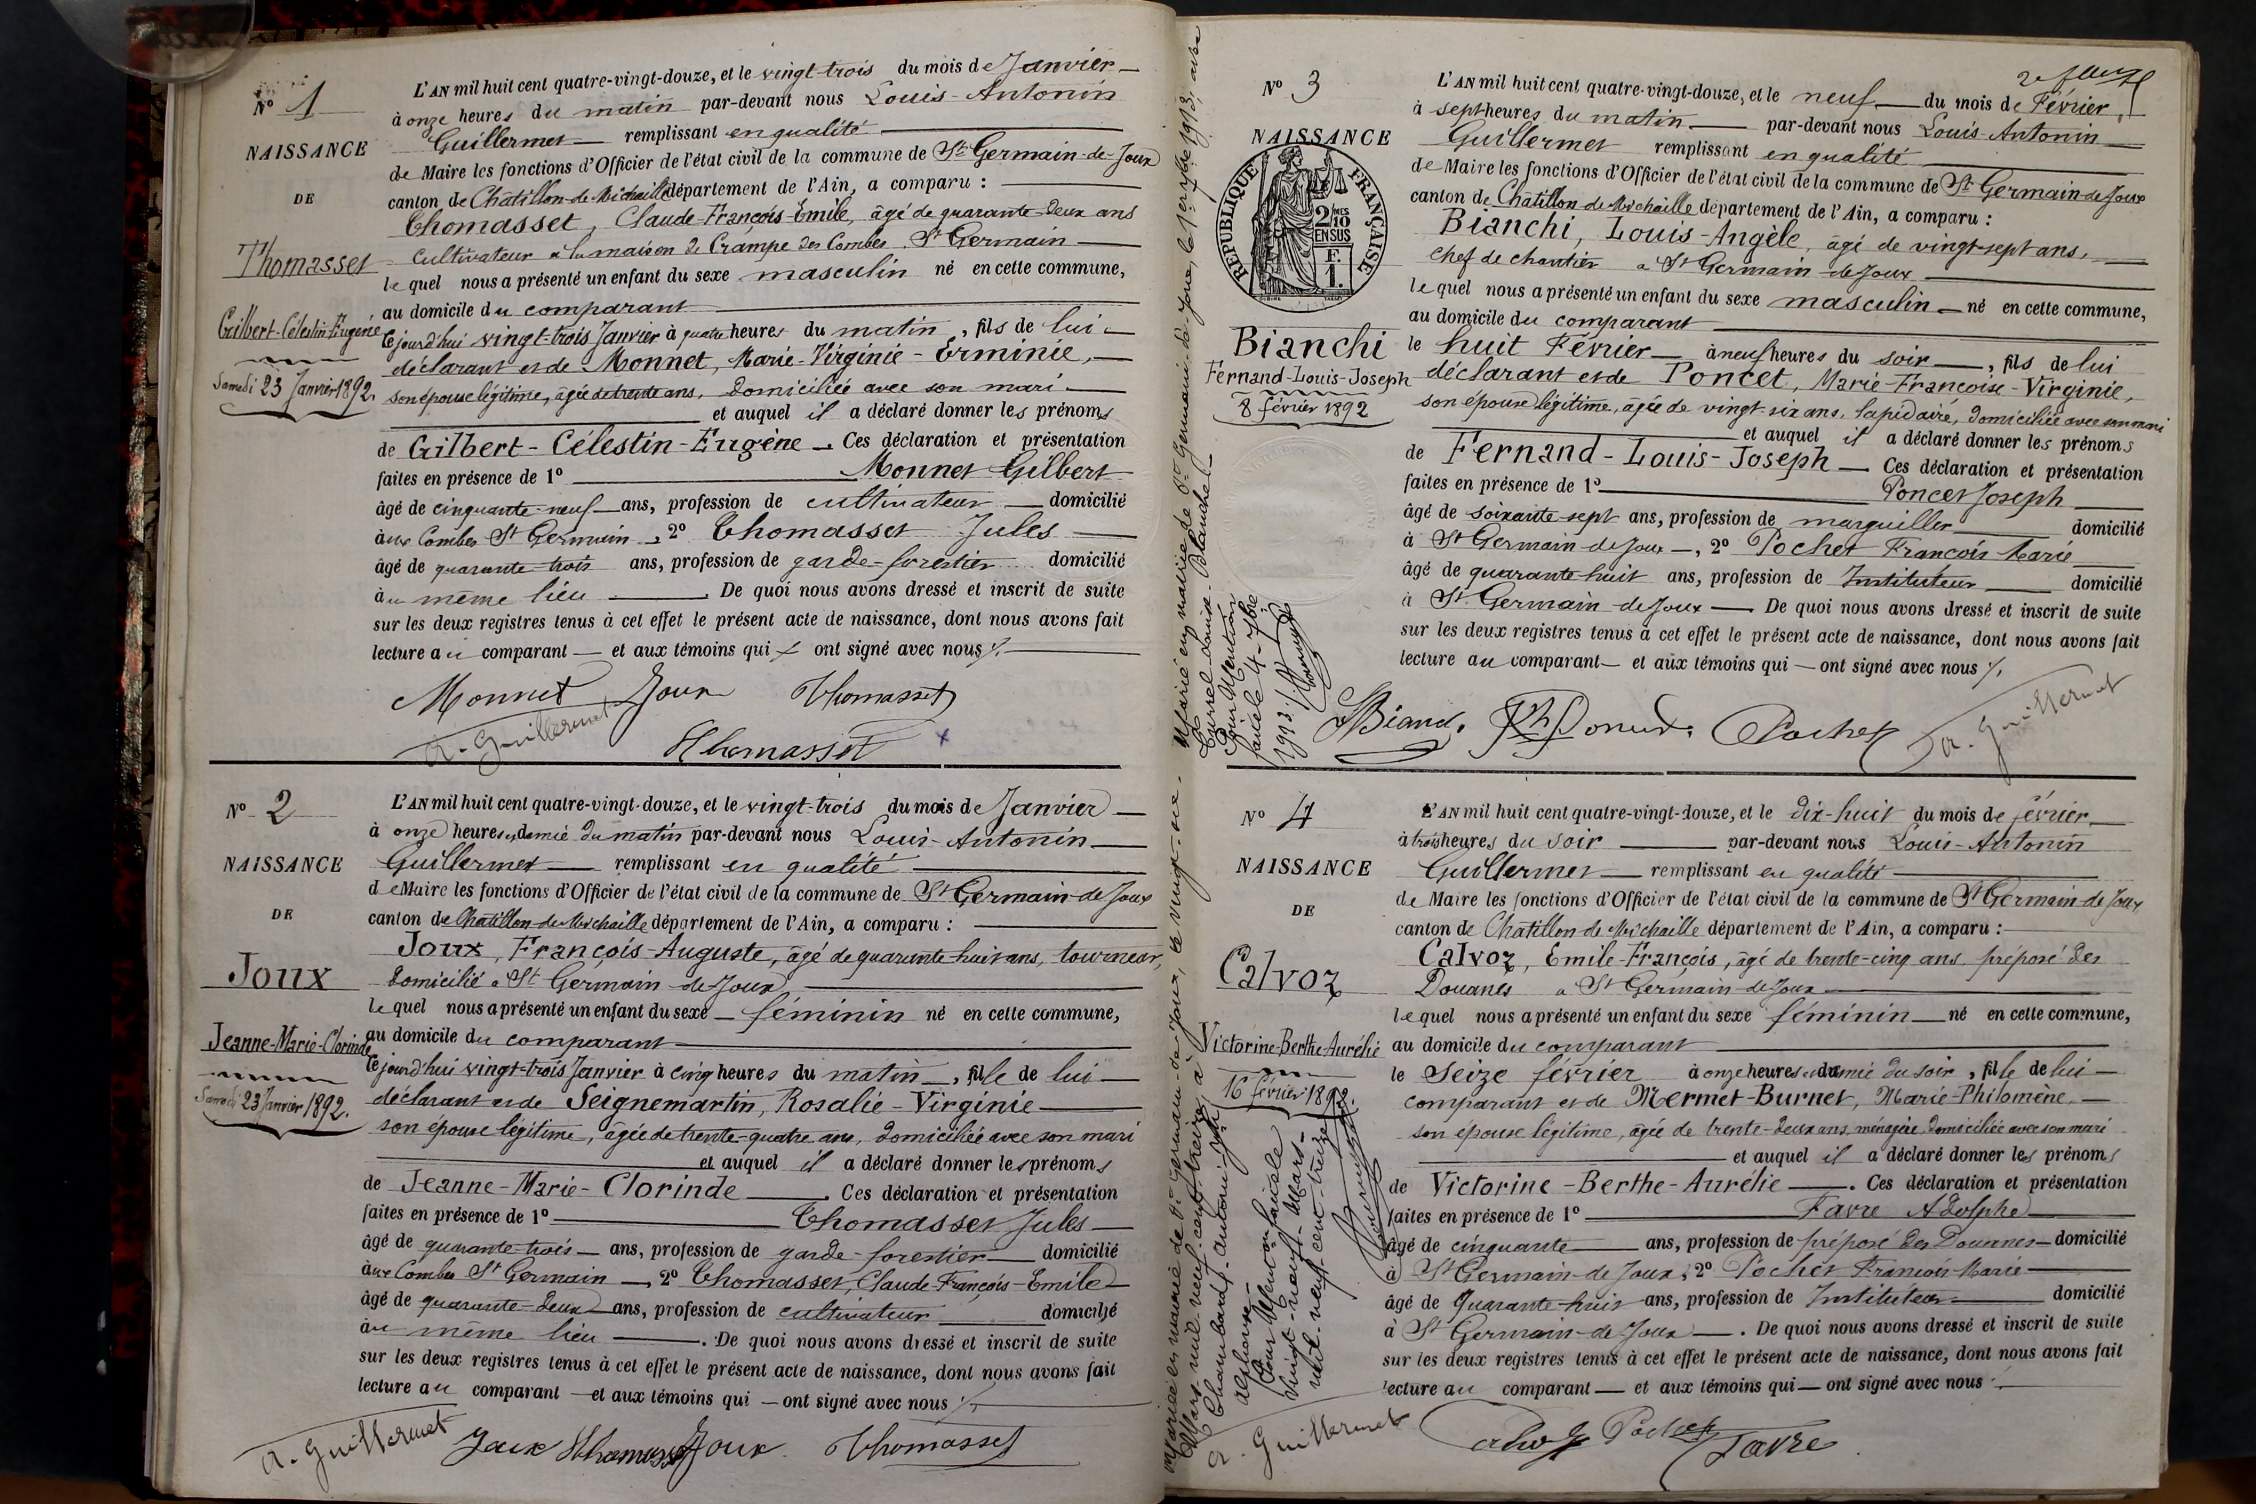 Nº 1
NAISSANCE
DE
Thomasset
Gilbert-Célestin-Eugène
Samedi 23 Janvier 1892.
L'AN mil huit cent quatre-vingt-douze, et le vingt-trois du mois de Janvier
à onze heures du matin par-devant nous Louis-Antonin
Guillermet remplissant en qualité
de Maire les fonctions d'Officier de l'état civil de la commune de St Germain-de-Joux
canton de Châtillon-de-Michaille département de l'Ain, a comparu :
Thomasset, Claude-François-Emile, âgé de quarante-deux ans
cultivateur à la maison de Crampe des Combes St Germain
lequel nous a présenté un enfant du sexe masculin né en cette commune,
au domicile du comparant
cejourd'hui vingt-trois Janvier à quatre heures du matin, fils de lui
déclarant et de Monnet, Marie-Virginie-Erminie,
son épouse légitime, âgée de trente ans, domiciliée avec son mari
et auquel il a déclaré donner les prénoms
de Gilbert-Célestin-Eugène. Ces déclaration et présentation
faites en présence de 1º Monnet Gilbert
âgé de cinquante-neuf ans, profession de cultivateur domicilié
aux Combes St Germain, 2º Thomasset Jules
âgé de quarante-trois ans, profession de garde-forestier domicilié
au même lieu. De quoi nous avons dressé et inscrit de suite
sur les deux registres tenus à cet effet le présent acte de naissance, dont nous avons fait
lecture au comparant et aux témoins qui ont signé avec nous
Monnet Joux Thomasset
A. Guillermet Thomasset
Nº 2
NAISSANCE
DE
Joux
Jeanne-Marie-Clorinde
Samedi 23 Janvier 1892.
L'AN mil huit cent quatre-vingt-douze, et le vingt-trois du mois de Janvier
à onze heures et demie du matin par-devant nous Louis-Antonin
Guillermet remplissant en qualité
de Maire les fonctions d'Officier de l'état civil de la commune de St Germain-de-Joux
canton de Châtillon-de-Michaille département de l'Ain, a comparu :
Joux, François-Auguste, âgé de quarante-huit ans, tourneur,
domicilié à St Germain-de-Joux
lequel nous a présenté un enfant du sexe féminin né en cette commune,
au domicile du comparant
cejourd'hui vingt-trois Janvier à cinq heures du matin, fille de lui
déclarant et de Seignemartin, Rosalie-Virginie
son épouse légitime, âgée de trente-quatre ans, domiciliée avec son mari
et auquel il a déclaré donner les prénoms
de Jeanne-Marie-Clorinde. Ces déclaration et présentation
faites en présence de 1º Thomasset Jules
âgé de quarante-trois ans, profession de garde-forestier domicilié
aux Combes St Germain, 2º Thomasset, Claude-François-Emile
âgé de quarante-deux ans, profession de cultivateur domicilié
au même lieu. De quoi nous avons dressé et inscrit de suite
sur les deux registres tenus à cet effet le présent acte de naissance, dont nous avons fait
lecture au comparant et aux témoins qui ont signé avec nous
A. Guillermet Joux Thomasset Joux Thomasset
2e feuillet
Nº 3
NAISSANCE
RÉPUBLIQUE FRANÇAISE
2/10MES
EN SUS
F.
1.
Bianchi
Fernand-Louis-Joseph
8 février 1892
Marié en mairie de St Germain-de-Joux, le 1er 7bre 1913, avec
Blanchet
Pour Mention
faite le 4 7bre
1913.
L'AN mil huit cent quatre-vingt-douze, et le neuf du mois de Février,
à sept heures du matin par-devant nous Louis-Antonin
Guillermet remplissant en qualité
de Maire les fonctions d'Officier de l'état civil de la commune de St Germain-de-Joux
canton de Châtillon-de-Michaille département de l'Ain, a comparu :
Bianchi, Louis-Angèle, âgé de vingt-sept ans,
chef de chantier à St Germain-de-Joux
lequel nous a présenté un enfant du sexe masculin né en cette commune,
au domicile du comparant
le huit Février à neuf heures du soir, fils de lui
déclarant et de Poncet, Marie-Françoise-Virginie,
son épouse légitime, âgée de vingt-six ans, lapidaire, domiciliée avec son mari
et auquel il a déclaré donner les prénoms
de Fernand-Louis-Joseph. Ces déclaration et présentation
faites en présence de 1º Poncet Joseph
âgé de soixante-sept ans, profession de marguiller domicilié
à St Germain-de-Joux, 2º Pochet François Marie
âgé de quarante-huit ans, profession de Instituteur domicilié
à St Germain-de-Joux. De quoi nous avons dressé et inscrit de suite
sur les deux registres tenus à cet effet le présent acte de naissance, dont nous avons fait
lecture au comparant et aux témoins qui ont signé avec nous
Pochet A. Guillermet
Nº 4
NAISSANCE
DE
Calvoz
Victorine-Berthe-Aurélie
16 février 1892.
Mariée en mairie de St Germain-de-Joux, le vingt-six
Mars mil neuf cent treize, à
Chambard-Antoni
Alphonse
Pour Mention faite le
vingt-neuf-Mars
mil-neuf-cent-treize
L'AN mil huit cent quatre-vingt-douze, et le dix-huit du mois de février
à trois heures du soir par-devant nous Louis-Antonin
Guillermet remplissant en qualité
de Maire les fonctions d'Officier de l'état civil de la commune de St Germain-de-Joux
canton de Châtillon-de-Michaille département de l'Ain, a comparu :
Calvoz, Emile-François, âgé de trente-cinq ans préposé des
Douanes à St Germain-de-Joux
lequel nous a présenté un enfant du sexe féminin né en cette commune,
au domicile du comparant
le Seize février à onze heures et demie du soir, fille de lui
comparant et de Mermet-Burnet, Marie-Philomène,
son épouse légitime, âgée de trente-deux ans, ménagère, domiciliée avec son mari
et auquel il a déclaré donner les prénoms
de Victorine-Berthe-Aurélie. Ces déclaration et présentation
faites en présence de 1º Favre Adolphe
âgé de cinquante ans, profession de préposé des Douanes domicilié
à St Germain-de-Joux, 2º Pochet François Marie
âgé de Quarante-huit ans, profession de Instituteur domicilié
à St Germain-de-Joux. De quoi nous avons dressé et inscrit de suite
sur les deux registres tenus à cet effet le présent acte de naissance, dont nous avons fait
lecture au comparant et aux témoins qui ont signé avec nous
A. Guillermet Calvoz Pochet Favre